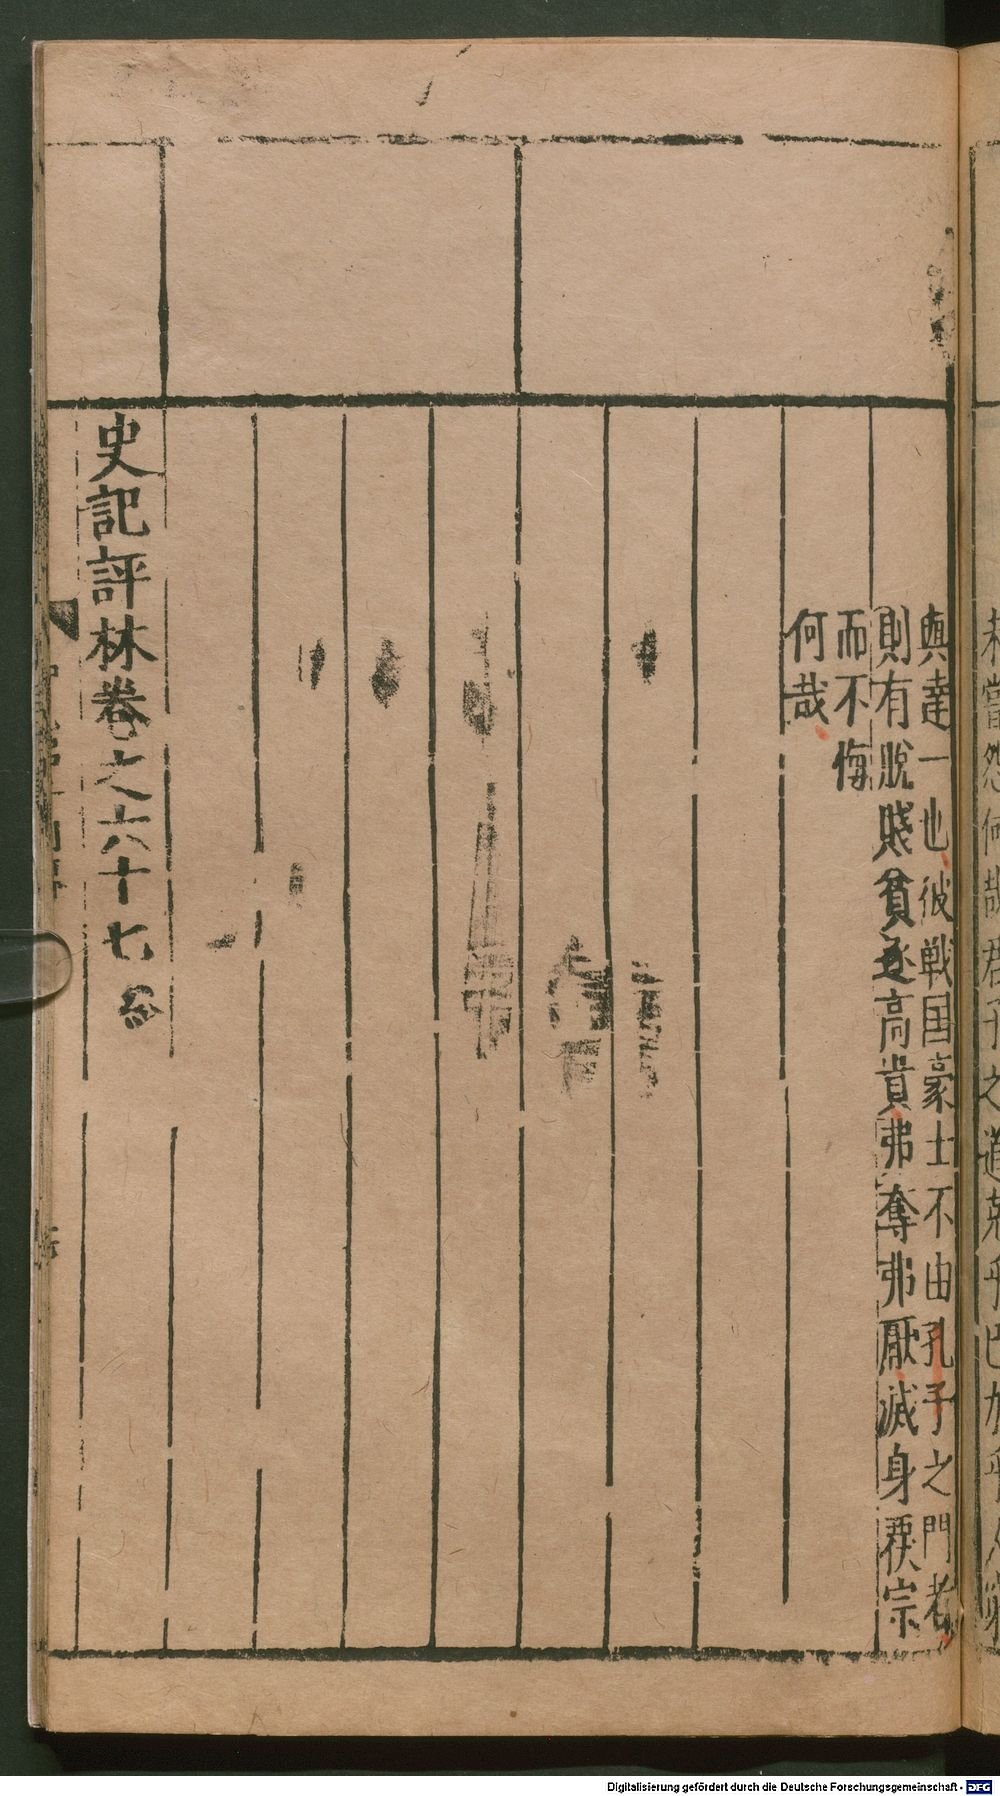 未嘗怨何哉君子之道
與達一也彼戦国豪士不由孔子之門者
則有脫賤貧逐高貴弗奪弗厭滅身覆宗
而不悔
何哉
史記評林卷之六十七終
Digitalisierung gefördert durch die Deutsche Forschungsgemeinschaft - DFG